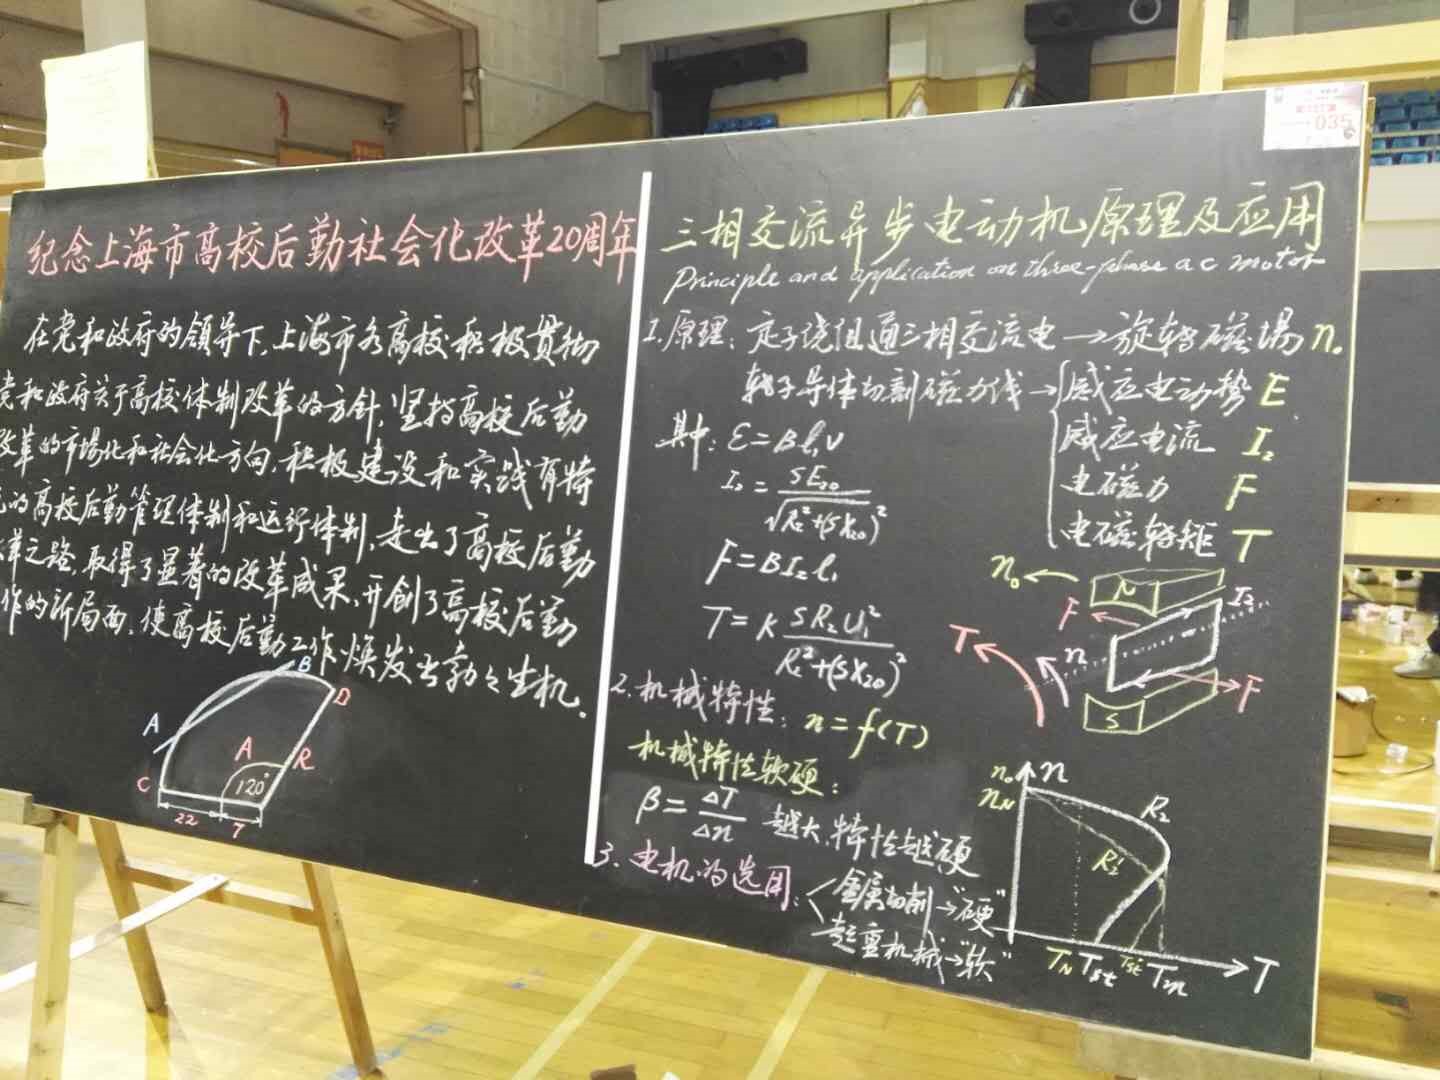 纪念上海市高校后勤社会化改革20周年
在党和政府的领导下,上海市各高校积极贯彻
党和政府关于高校体制改革的方针,坚持高校后勤
改革的市场化和社会化方向,积极建设和实践有特
的高校后勤管理体制和运行体制,走出了高校后勤
革之路,取得了显著的改革成果,开创了高校后勤
作的新局面,使高校后勤工作焕发出勃勃生机.
B
D
A
A
R
C
120°
22
7
035
三相交流异步电动机原理及应用
Principle and application on three-phase ac motor
1.原理:定子绕组通三相交流电→旋转磁场 n₀
转子导体切割磁力线→{感应电动势 E
感应电流 I₂
电磁力 F
电磁转矩 T
其中:ε=Bl₁v
I₂=SE₂₀/√(R₂²+(SX₂₀)²)
F=BI₂l₁
T=K SR₂U₁²/(R₂²+(SX₂₀)²)
n₀
N
I₂
F
T
n
F
S
2.机械特性:n=f(T)
机械特性软硬:
β=ΔT/Δn 越大,特性越硬
3.电机的选用:<金属切削→"硬"
起重机械→"软"
n₀
n
n_N
R₂
R₂'
T_N T_st T_st' T_m
T